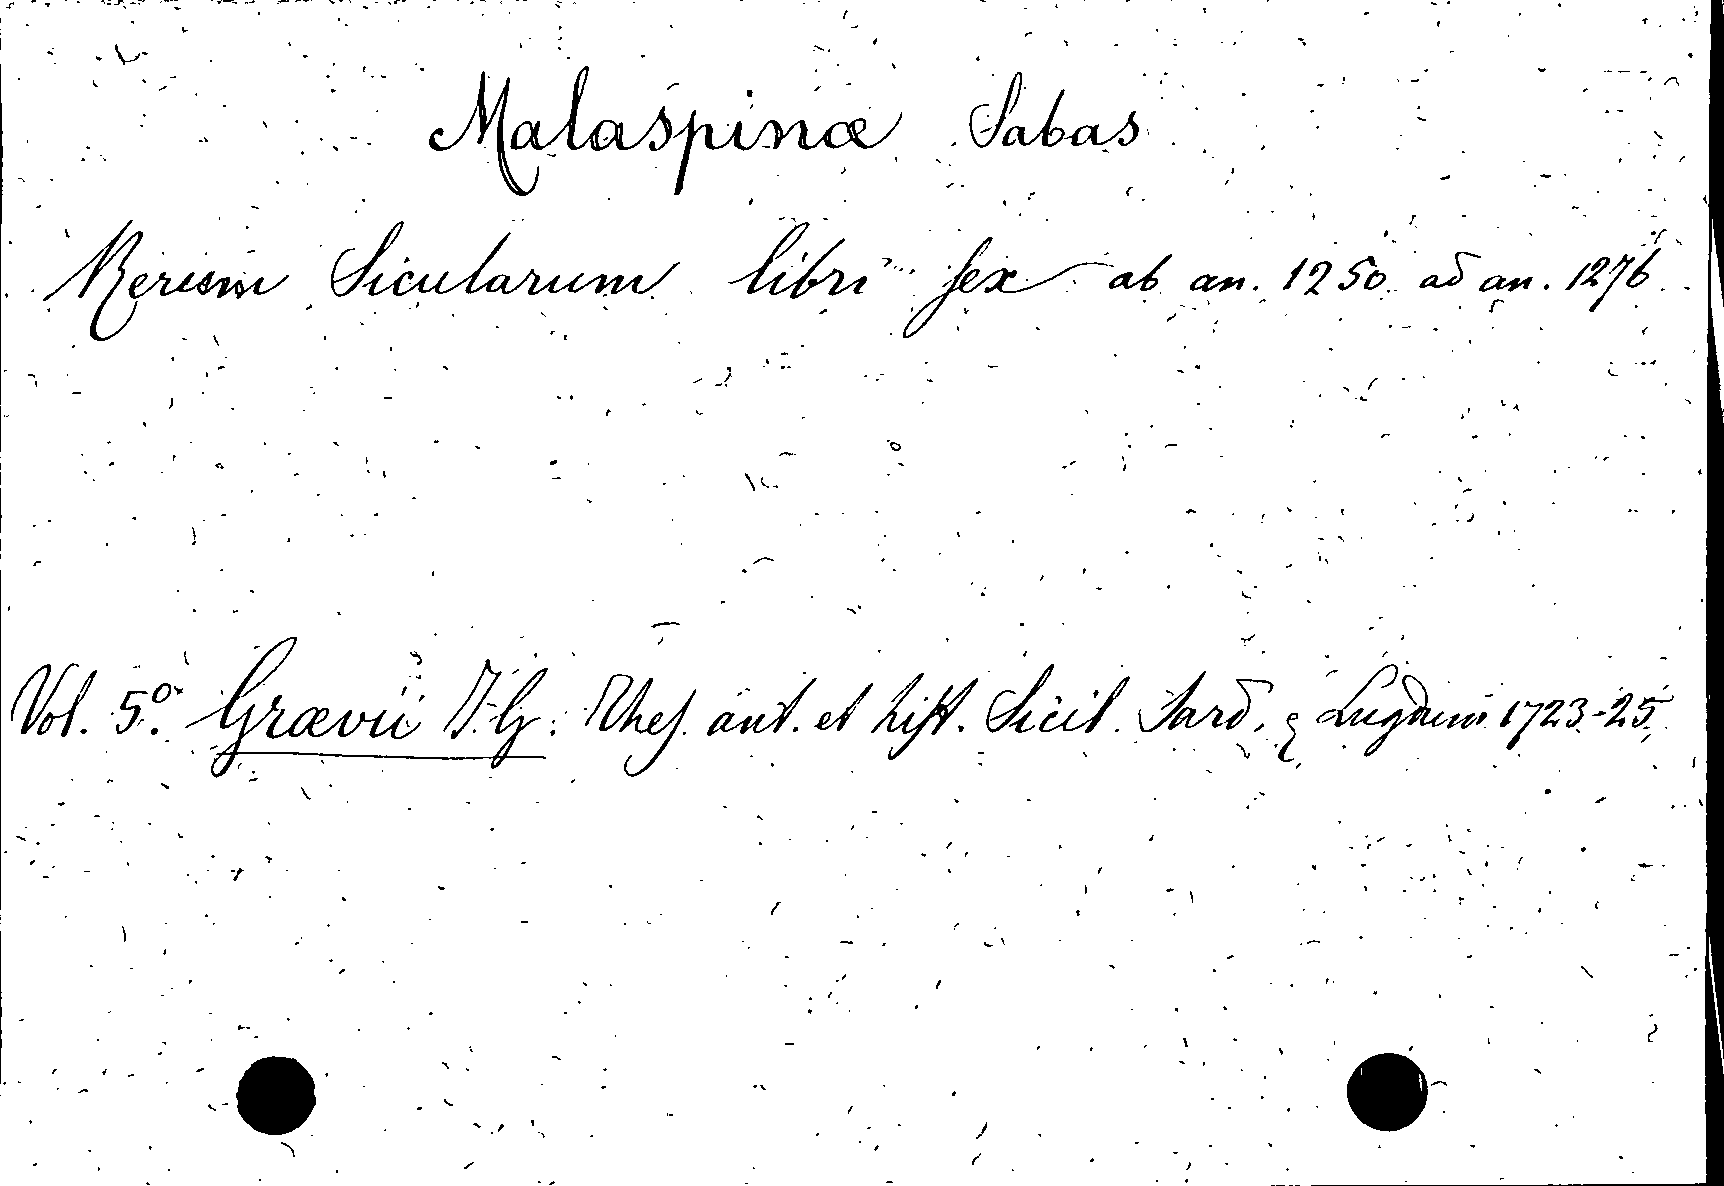 Malaspinæ Sabas
Rerum Sicularum libri sex ab an. 1250 ad an. 1276
Vol. 5º. Grævii J. G. Thes. ant. et hist. Sicil. Sard. & Lugduni 1723-25.